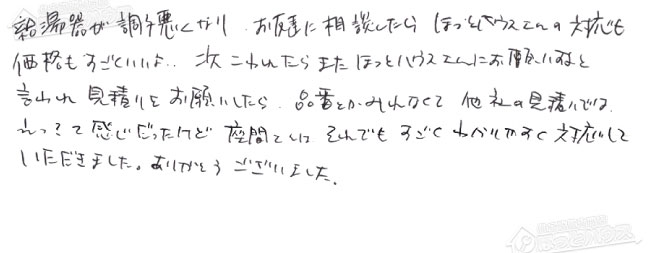 給湯器が調子悪くなり、お友達に相談したら ほっとハウスさんの対応も
価格もすごくいいよ。次こわれたらまたほっとハウスさんにお願いすると
言われ見積りをお願いしたら、品番とかみれなくて他社の見積りでは
えっ?て感じだったけど それでもすごくわかりやすく対応して
いただきました。ありがとうございました。